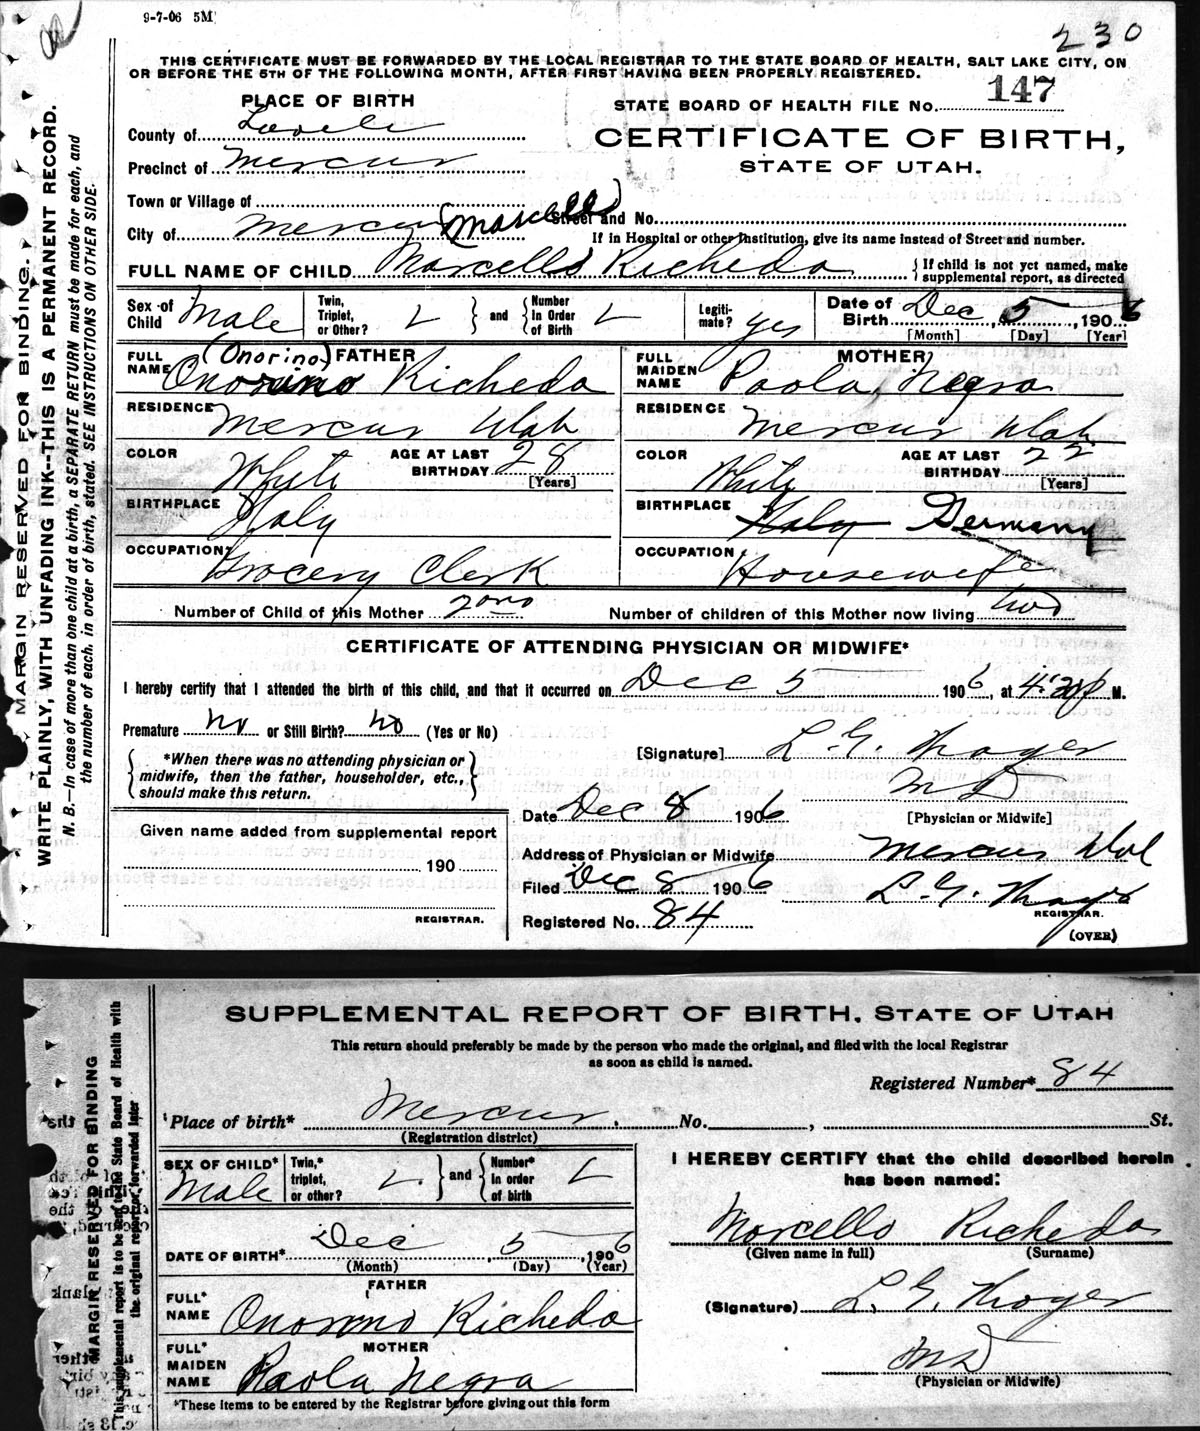 9-7-06 5M
230
THIS CERTIFICATE MUST BE FORWARDED BY THE LOCAL REGISTRAR TO THE STATE BOARD OF HEALTH, SALT LAKE CITY, ON
OR BEFORE THE 5TH OF THE FOLLOWING MONTH, AFTER FIRST HAVING BEEN PROPERLY REGISTERED.
MARGIN RESERVED FOR BINDING.
WRITE PLAINLY, WITH UNFADING INK--THIS IS A PERMANENT RECORD.
N. B.--In case of more than one child at a birth, a SEPARATE RETURN must be made for each, and
the number of each, in order of birth, stated. SEE INSTRUCTIONS ON OTHER SIDE.
PLACE OF BIRTH
STATE BOARD OF HEALTH FILE No. 147
County of Tooele
CERTIFICATE OF BIRTH,
Precinct of Mercur
STATE OF UTAH.
Town or Village of
City of Mercur (Marcello) Street and No.
If in Hospital or other Institution, give its name instead of Street and number.
FULL NAME OF CHILD Marcello Richeda {If child is not yet named, make
supplemental report, as directed
Sex of Child Male Twin, Triplet, or Other? and Number In Order of Birth Legiti-mate? yes Date of Birth Dec, 5, 1906
[Month] [Day] [Year]
FULL NAME (Onorino) FATHER
Onorino Richeda
FULL MAIDEN NAME MOTHER
Paola Negra
RESIDENCE Mercur Utah
RESIDENCE Mercur Utah
COLOR White AGE AT LAST BIRTHDAY 28 [Years]
COLOR White AGE AT LAST BIRTHDAY 22 [Years]
BIRTHPLACE Italy
BIRTHPLACE Italy Germany
OCCUPATION Grocery Clerk
OCCUPATION Housewife
Number of Child of this Mother 2ond Number of children of this Mother now living two
CERTIFICATE OF ATTENDING PHYSICIAN OR MIDWIFE*
I hereby certify that I attended the birth of this child, and that it occurred on Dec 5 1906, at P M.
Premature no or Still Birth? no (Yes or No)
[Signature] L. G. Thayer
M D
[Physician or Midwife]
*When there was no attending physician or
midwife, then the father, householder, etc.,
should make this return.
Date Dec 8 1906
Given name added from supplemental report
190
REGISTRAR.
Address of Physician or Midwife Mercur Utah
Filed Dec 8 1906 L. G. Thayer
REGISTRAR.
Registered No. 84
(OVER)
SUPPLEMENTAL REPORT OF BIRTH, STATE OF UTAH
This return should preferably be made by the person who made the original, and filed with the local Registrar
as soon as child is named.
MARGIN RESERVED FOR BINDING
This supplemental report is to be sent to the State Board of Health with
the original report or forwarded later
Registered Number* 84
Place of birth* Mercur, No. , St.
(Registration district)
SEX OF CHILD* Male Twin,* triplet, or other? and Number* In order of birth
I HEREBY CERTIFY that the child described herein
has been named:
Marcello Richeda
(Given name in full) (Surname)
DATE OF BIRTH* Dec, 5, 1906
(Month) (Day) (Year)
FATHER
FULL* NAME Onorino Richeda
(Signature) L. G. Thayer
M D
(Physician or Midwife)
MOTHER
FULL* MAIDEN NAME Paola Negra
*These items to be entered by the Registrar before giving out this form